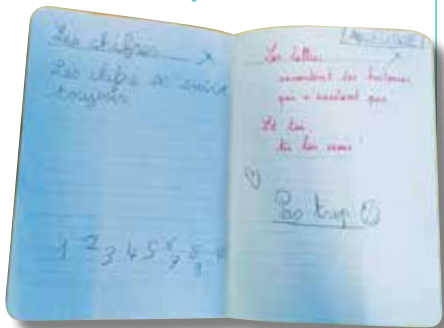 Les chifres
Les chifre se suive
toujour
1 2 3 4 5 6 7 8 9
Les lettres
racontent les histoires
qui n'existent pas
Et toi,
tu les
Pas trop